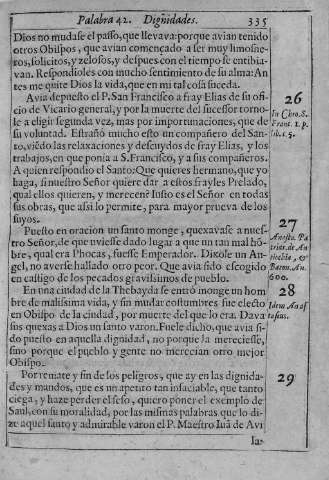 Palabra 42. Dignidades. 335
Dios no mudase el passo, que llevava: porque avian tenido
otros Obispos, que avian començado a ser muy limosne-
ros, solicitos, y zelosos, y despues con el tiempo se entibia-
van. Respondioles con mucho sentimiento de su alma: An
tes me quite Dios la vida, que en mi tal cosa suceda.
Avia depuesto el P. San Francisco a fray Elias de su ofi-
cio de Vicario general, y por la muerte del sucessor torno-
le a eligir segunda vez, mas por importunaciones, que de
su voluntad. Estrañò mucho esto un compañero del San-
to, viẽdo las relaxaciones y descuydos de fray Elias, y los
trabajos, en que ponia a S. Francisco, y a sus compañeros.
A quien respondio el Santo: Que quieres hermano, que yo
haga, si nuestro Señor quiere dar a estos frayles Prelado,
qual ellos quieren, y merecen? Iusto es el Señor en todas
sus obras, que assi lo permite, para mayor prueva de los
suyos.
Puesto en oracion un santo monge, quexavase a nues-
tro Señor, de que uviesse dado lugar a que un tan mal hõ-
bre, qual era Phocas, fuesse Emperador. Dixole un An-
gel, no averse hallado otro peor. Que avia sido escogido
en castigo de los pecados gravissimos de pueblo.
En una ciudad de la Thebayda se entrò monge un hom
bre de malissima vida, y sin mudar costumbres fue electo
en Obispo de la ciudad, por muerte del que lo era. Dava
sus quexas a Dios un santo varon. Fuele dicho, que avia si-
do puesto en aquella dignidad, no porque la mereciesse,
sino porque el pueblo y gente no merecian otro mejor
Obispo.
Por remate y fin de los peligros, que ay en las dignida-
des y mandos, que es un apetito tan insaciable, que tanto
ciega, y haze perder el seso, quiero poner el exemplo de
Saul, con su moralidad, por las mismas palabras que lo di-
ze aquel santo y admirable varon el P. Maestro Iuã de Avi
la-
26
In Chro. S.
Franc. 1. p.
lib. 1. 5.
27
Anasta. Pa
triar. de An
thiochia, &
Baron. An.
600.
28
Idem Anas
tasius.
29